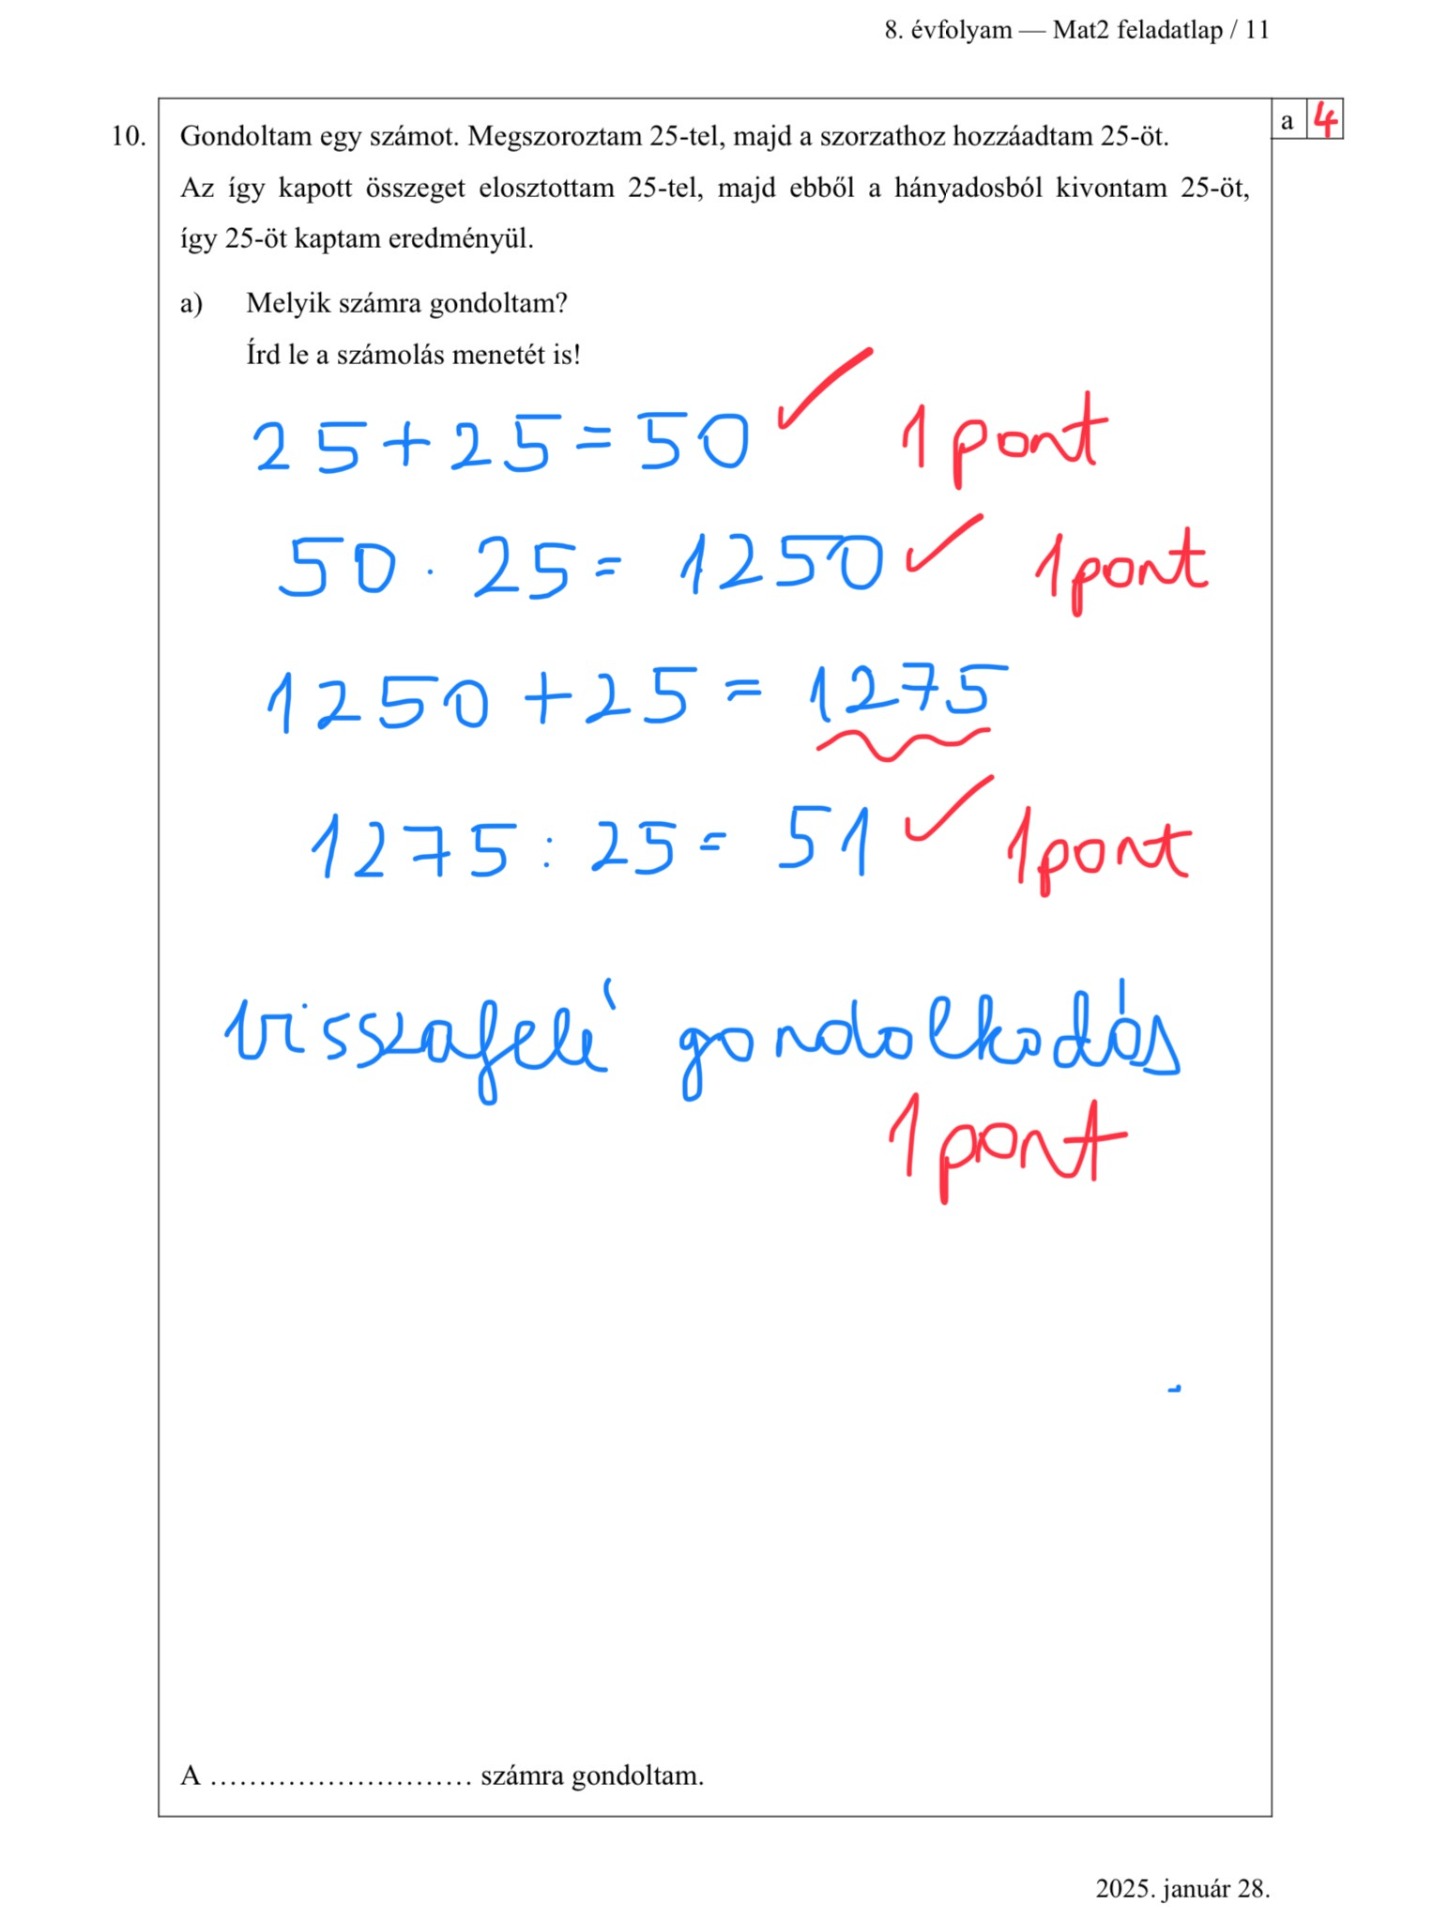 8. évfolyam — Mat2 feladatlap / 11
a 4
10. Gondoltam egy számot. Megszoroztam 25-tel, majd a szorzathoz hozzáadtam 25-öt.
Az így kapott összeget elosztottam 25-tel, majd ebből a hányadosból kivontam 25-öt,
így 25-öt kaptam eredményül.
a) Melyik számra gondoltam?
Írd le a számolás menetét is!
25+25=50 1 pont
50 · 25= 1250 1 pont
1250 +25 = 1275
1275 : 25= 51 1 pont
visszafelé gondolkodás
1 pont
A ........................... számra gondoltam.
2025. január 28.